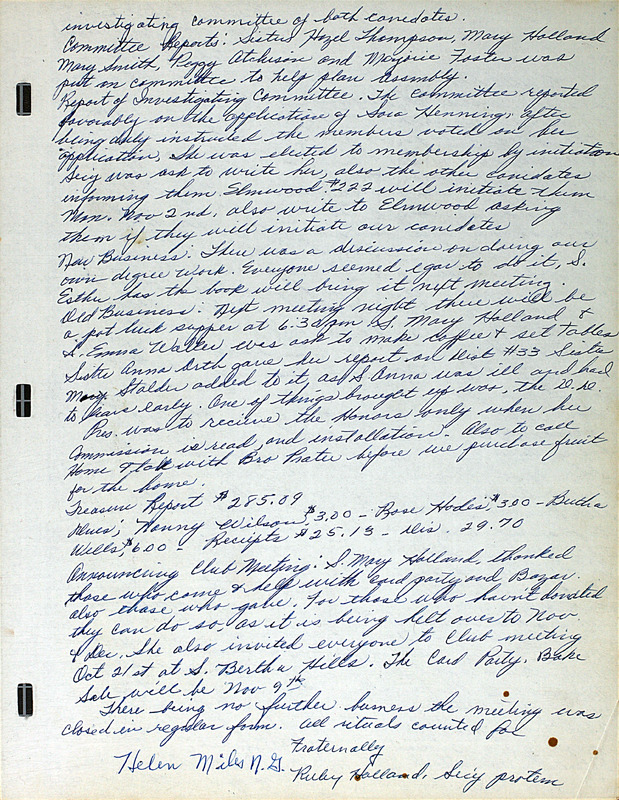 investigating committee of both canedates.
Committee Reports: Sisters Hazel Thompson, Mary Holland
Mary Smith, Peggy Atkison and Marjorie Foster was
put on committee to help plan assmbly.
Report of Investigating Committee. The committee reported
favorably on the application of Henning, after
being duly instructed the members voted on her
application, She was elected to membership by initiation
Secy was ask to write her, also the other canedates
informing them Elmwood #222 will initiate them
Mon. Nov 2nd, also write to Elmwood asking
them if they will initiate our canedates
New Business: There was a discussion on doing our
own degree work. Everyone seemed egar to do it, S.
Esther has the book will bring it next meeting.
Old Business: Next meeting night there will be
a pot luck supper at 6:30 pm S. Mary Holland &
S. Emma Walter was ask to make coffee & set tables
Sister Anna Orth gave her report on Dist #33 Sister
Mary Stalder added to it, as S. Anna was ill and had
to leave early. One of things brought up was, the D.D.
Pres. was to recieve the Honors only when her
Commission is read, and installation. Also to call
Home & talk with Bro Prater before we purchase fruit
for the home.
Treasure Report $285.09
Dues; Nanny Wilson $3.00 - Rose Hodes, $3.00 - Bertha
Wells $6.00 - Receipts $25.13 - Dis. 29.70
Announcing Club Meeting: S. Mary Holland, thanked
those who come & help with card party and Bazar.
also those who gave, For those who havn't donated
they can do so, as it is being helt over to Nov.
& Dec. She also invited everyone to Club meeting
Oct 21st at S. Bertha Hills. The Card Party, Bake
Sale will be Nov 9th
There being no further buness the meeting was
closed in regular form. All rituals counted for
Fraternally
Helen Miles N.G.
Ruby Holland, Secy protem